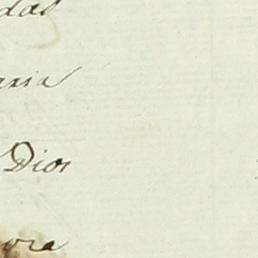 das
aria
Dios
ora